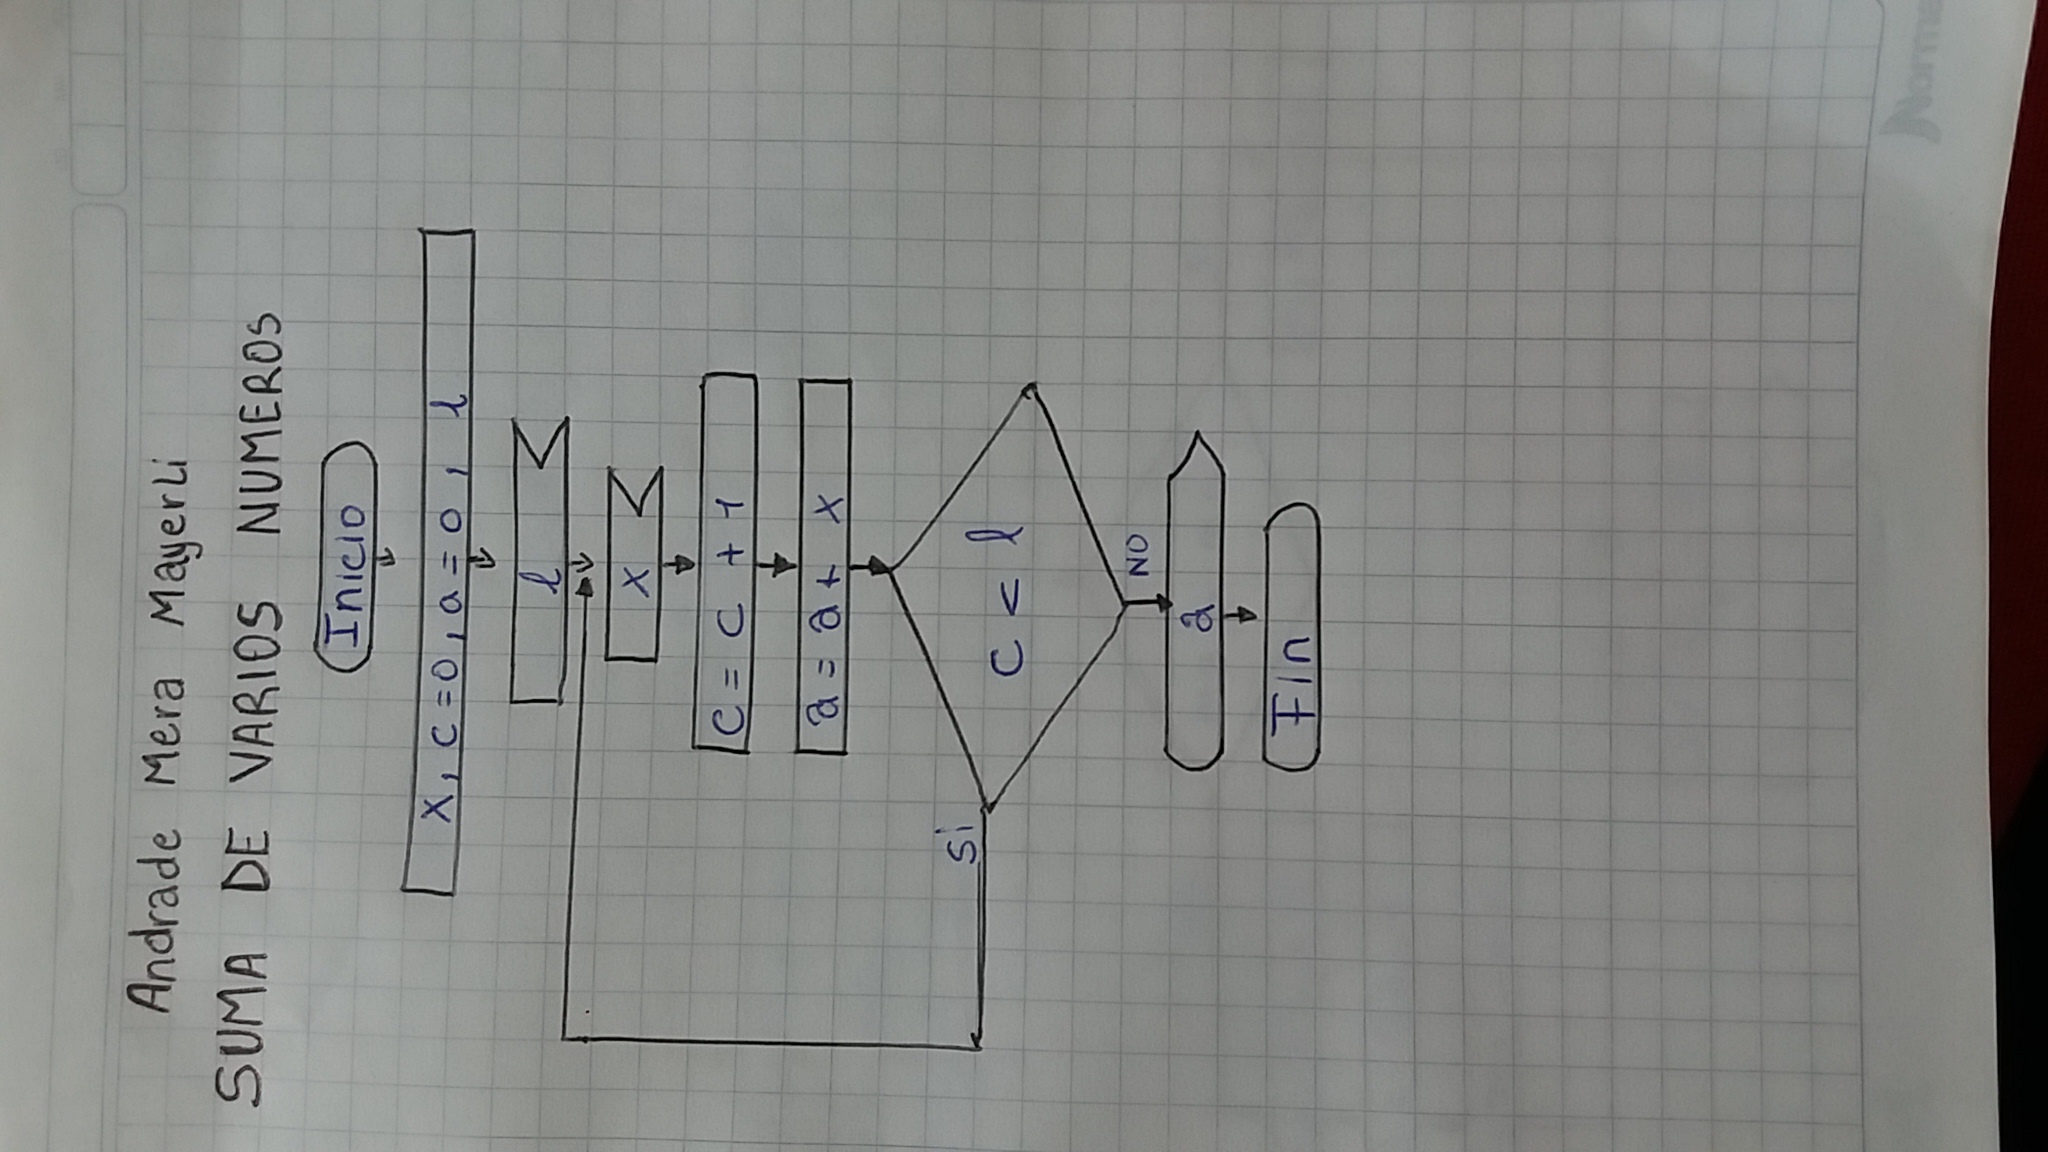 Andrade Mera Mayerli
SUMA DE VARIOS NUMEROS
Inicio
x, c=0, a=0, l
l
x
c = c + 1
a = a + x
c < l
si
NO
a
Fin
Norma